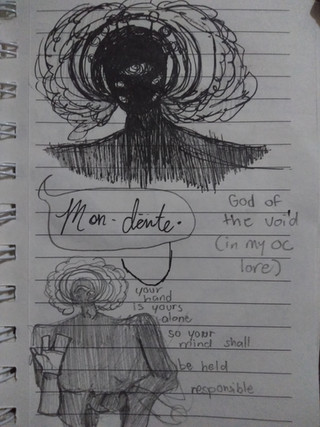 Mon-dënte.
God of
the void
(in my oc
lore)
your
hand
is yours
alone
so your
mind shall
be held
responsible